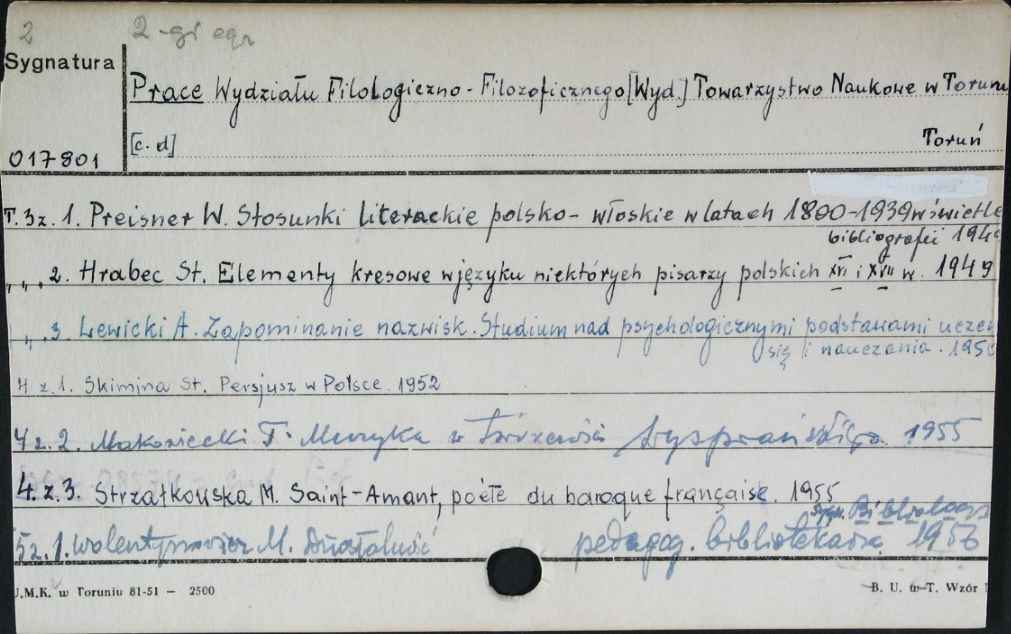 2 2-gi egz
Sygnatura
Prace Wydziału Filologiczno-Filozoficznego [Wyd.] Towarzystwo Naukowe w Toruniu
[c.d] Toruń
017801
T. 3 z. 1. Preisner W. Stosunki literackie polsko-włoskie w latach 1800-1939 w świetle
bibliografii 194
" " 2. Hrabec St. Elementy kresowe w języku niektórych pisarzy polskich XVI i XVII w. 1949
" " 3. Lewicki A. Zapominanie nazwisk. Studium nad psychologicznymi podstawami uczen
się i nauczania. 195
4 z. 1. Skimina St. Persjusz w Polsce. 1952
4 z. 2. Makowiecki T. Muzyka w twórczości Wyspiańskiego 1955
4. z. 3. Strzałkowska M. Saint-Amant, poète du baroque française. 1955
5 z. 1. Walentynowicz M. Działalność pedagog. bibliotekarza 1956
U.M.K. w Toruniu 81-51 — 2500
B. U. w T. Wzór